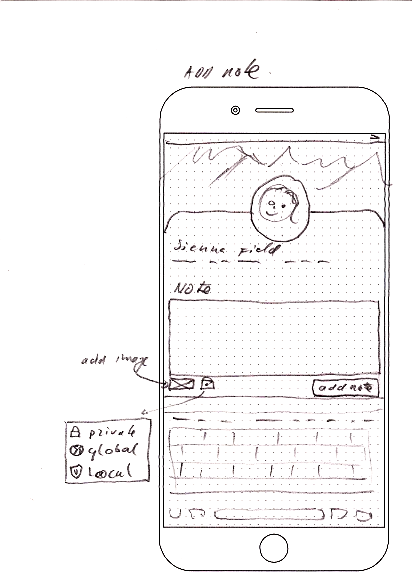 ADD note
Sienna field
Note
add image
add note
private
global
Local